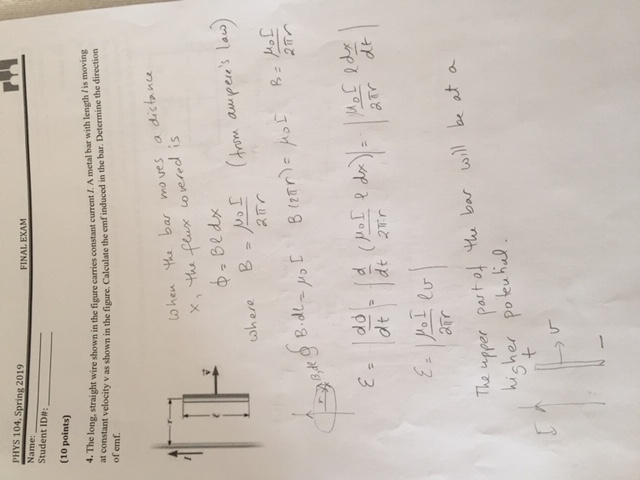 PHYS 104, Spring 2019
FINAL EXAM
Name:
Student ID#:
(10 points)
4. The long, straight wire shown in the figure carries constant current I. A metal bar with length l is moving
at constant velocity v as shown in the figure. Calculate the emf induced in the bar. Determine the direction
of emf.
I
r
ℓ
v
when the bar moves a distance
x, the flux covered is
Φ = Bℓdx
where B = μ₀I / 2πr (from ampere's law)
r B, dℓ ∮ B·dℓ = μ₀I B(2πr) = μ₀I B = μ₀I / 2πr
ε = |dΦ/dt| = |d/dt (μ₀I / 2πr ℓ dx)| = |μ₀I / 2πr ℓ dx/dt|
ε = |μ₀I / 2πr ℓv|
The upper part of the bar will be at a
higher potential.
I + v
-